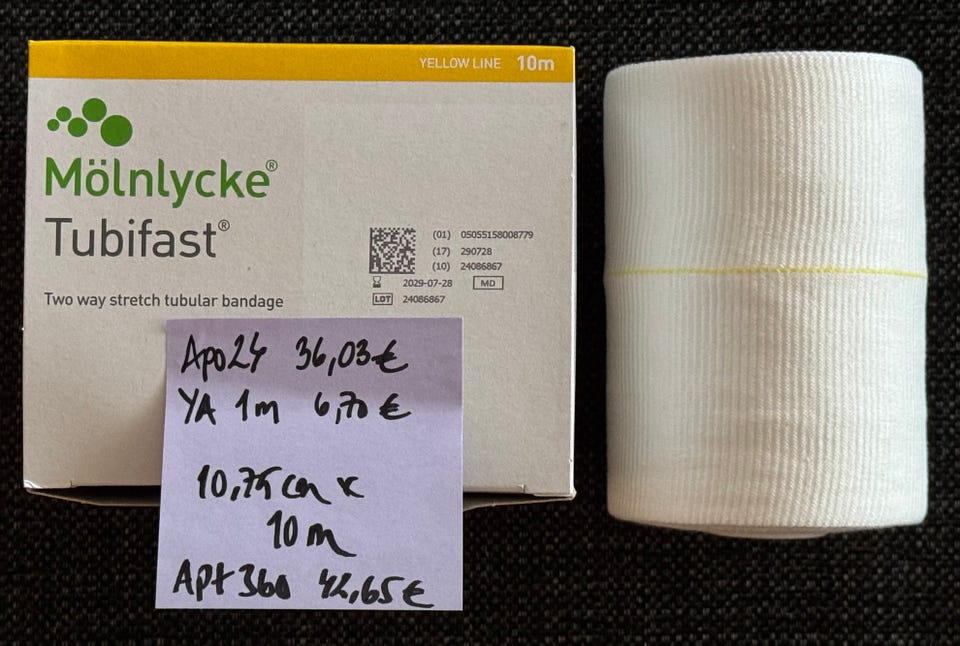 YELLOW LINE 10m
Mölnlycke®
Tubifast®
Two way stretch tubular bandage
(01) 05055158008779
(17) 290728
(10) 24086867
2029-07-28 MD
LOT 24086867
Apo24 36,03€
YA 1m 6,70€
10,75cm x
10m
Apt360 42,65€